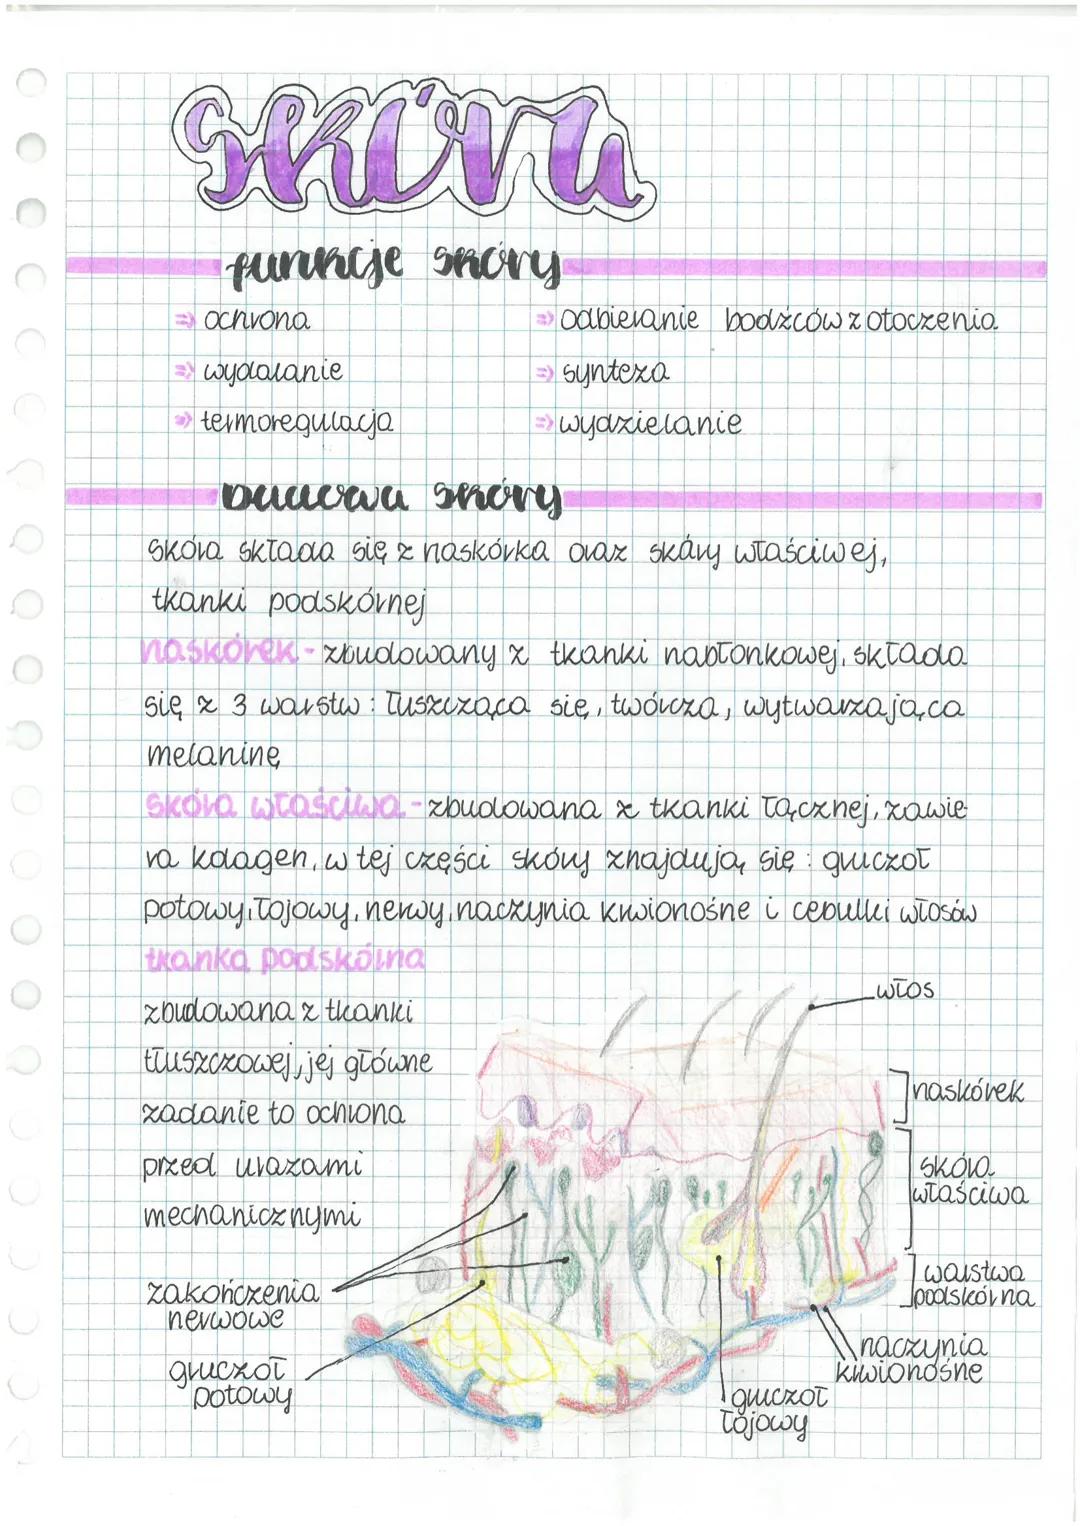 skóra
funkcje skóry
⇒ ochrona
⇒ odbieranie bodźców z otoczenia
⇒ wydalanie
⇒ synteza
⇒ termoregulacja
⇒ wydzielanie
Budowa skóry
skóra składa się z naskórka oraz skóry właściwej,
tkanki podskórnej
naskórek - zbudowany z tkanki nabłonkowej, składa
się z 3 warstw : łuszcząca się, twórcza, wytwarzająca
melaninę
skóra właściwa - zbudowana z tkanki łącznej, zawie
ra kolagen, w tej części skóry znajdują się : gruczoł
potowy, łojowy, nerwy, naczynia krwionośne i cebulki włosów
tkanka podskórna
zbudowana z tkanki
tłuszczowej, jej główne
zadanie to ochrona
przed urazami
mechanicznymi
włos
naskórek
skóra
właściwa
warstwa
podskórna
zakończenia
nerwowe
naczynia
krwionośne
gruczoł
potowy
gruczoł
łojowy